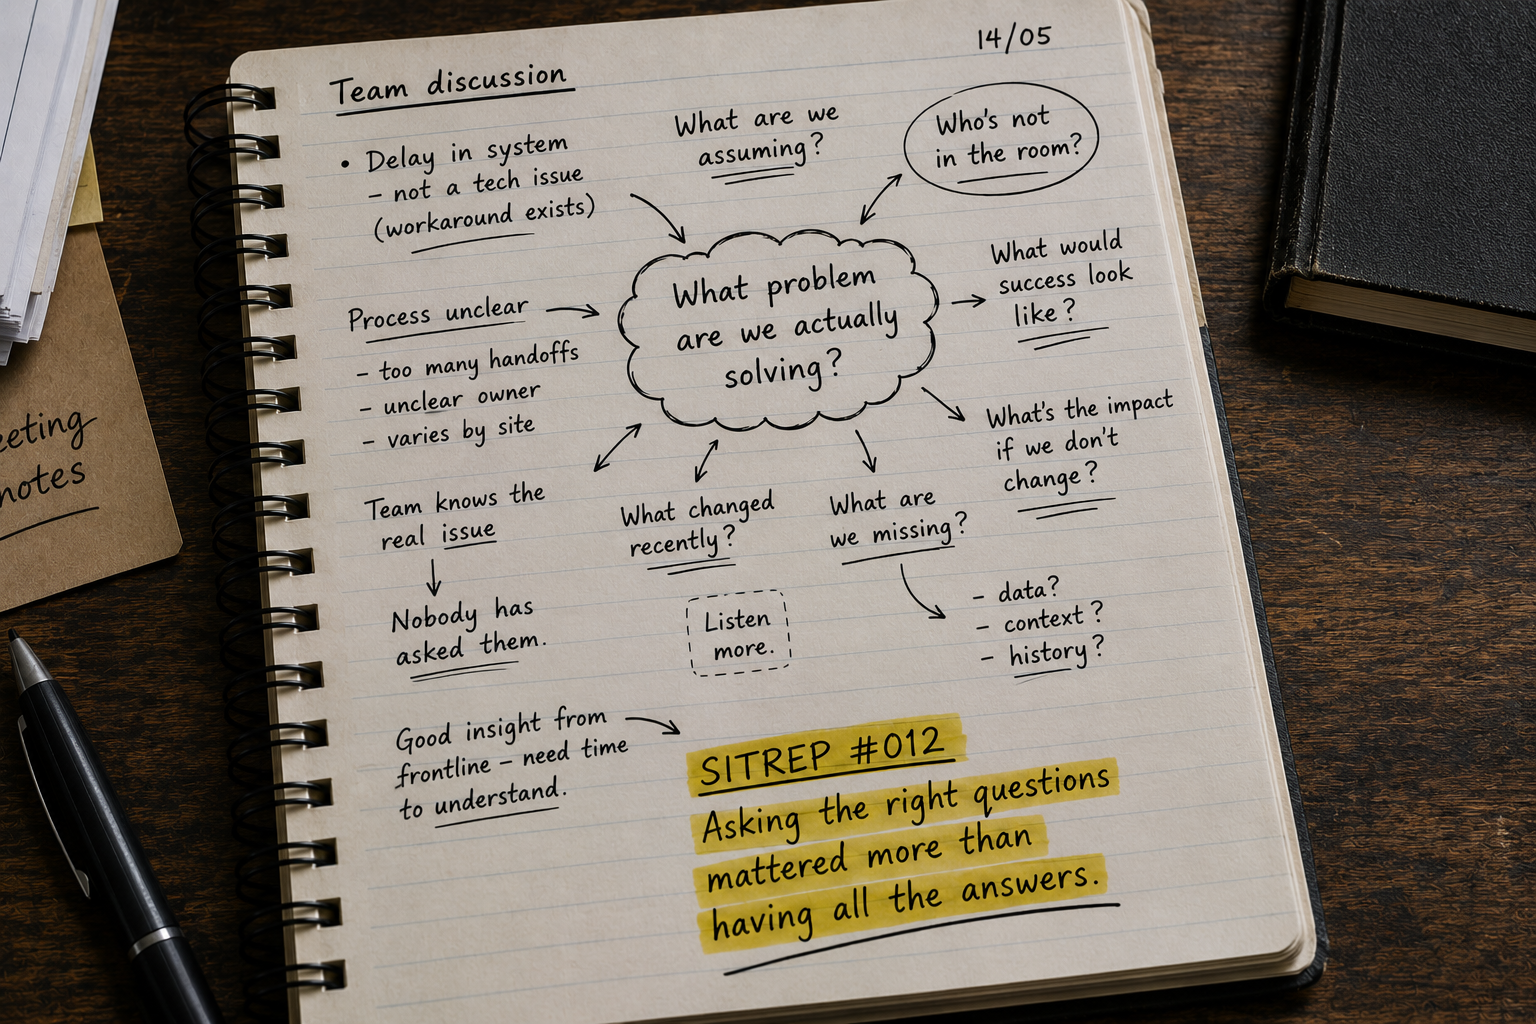 14/05
Team discussion
• Delay in system
– not a tech issue
(workaround exists)
What are we
assuming?
Who's not
in the room?
What problem
are we actually
solving?
What would
success look
like?
Process unclear
– too many handoffs
– unclear owner
– varies by site
What's the impact
if we don't
change?
Team knows the
real issue
Nobody has
asked them.
What changed
recently?
What are
we missing?
– data?
– context?
– history?
Listen
more.
Good insight from
frontline – need time
to understand.
SITREP #012
Asking the right questions
mattered more than
having all the answers.
eeting
notes